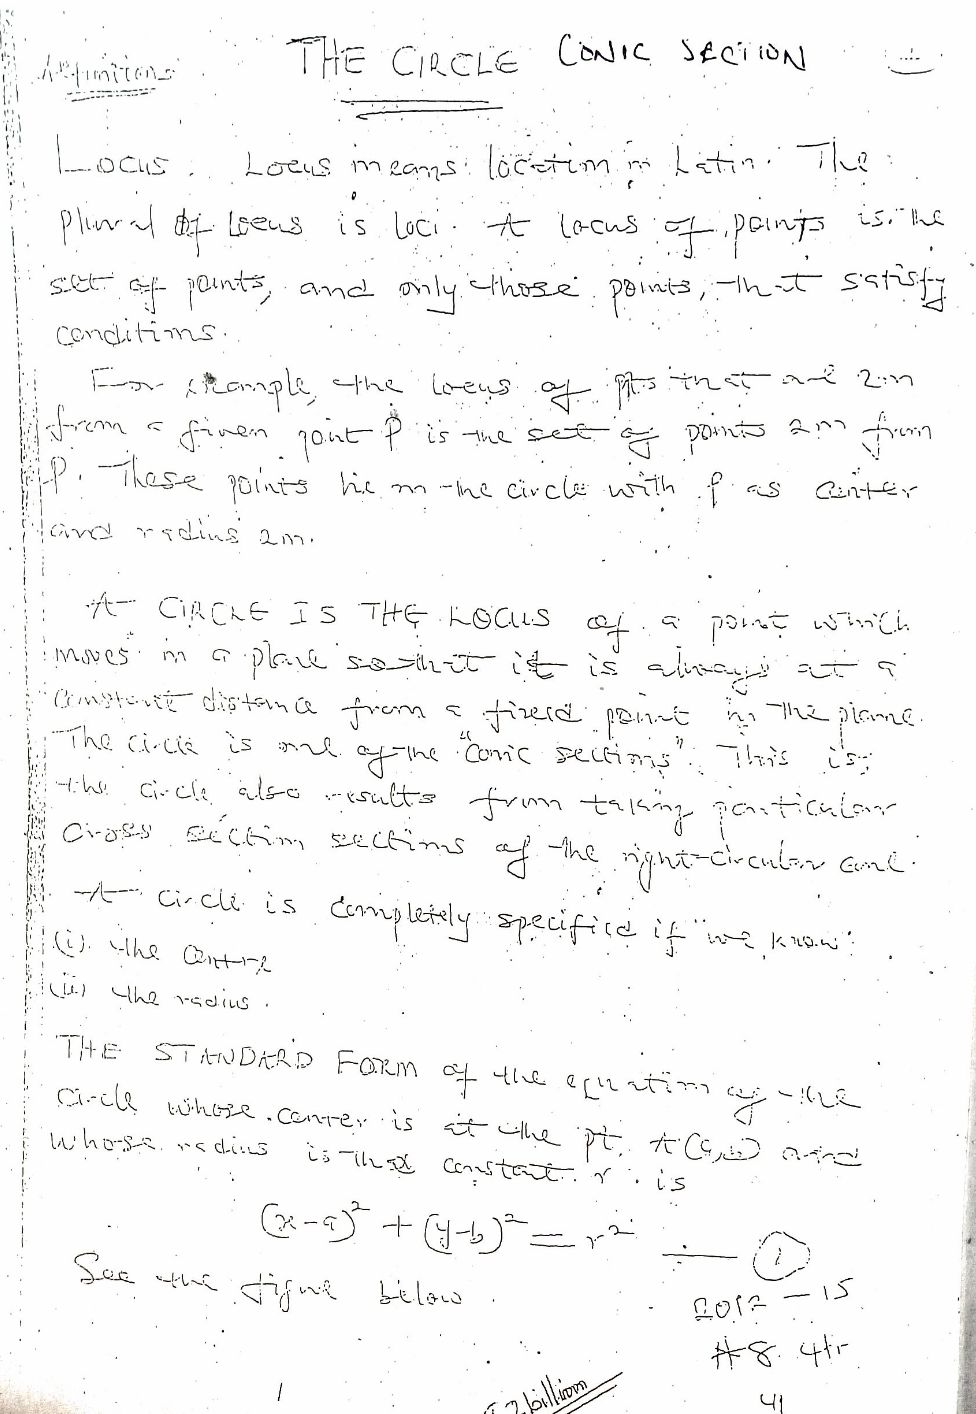 THE CIRCLE CONIC SECTION
Definitions
Locus. Locus means location in Latin. The
plural of locus is loci. A locus of points is the
set of points, and only those points, that satisfy
conditions.
For example, the locus of pts that are 2m
from a given point P is the set of points 2m from
P. These points lie on the circle with P as center
and radius 2m.
A CIRCLE IS THE LOCUS of a point which
moves in a plane so that it is always at a
constant distance from a fixed point in the plane.
The circle is one of the "conic sections". This is,
the circle also results from taking particular
cross section sections of the right-circular cone.
A circle is completely specified if we know:
(i) the centre
(ii) the radius.
THE STANDARD FORM of the equation of the
circle whose center is at the pt. A(a,b) and
whose radius is the constant r is
(x-a)² + (y-b)² = r² — (i)
See the figure below.
2012 - 15
#8.4tr
1
2 billion
41